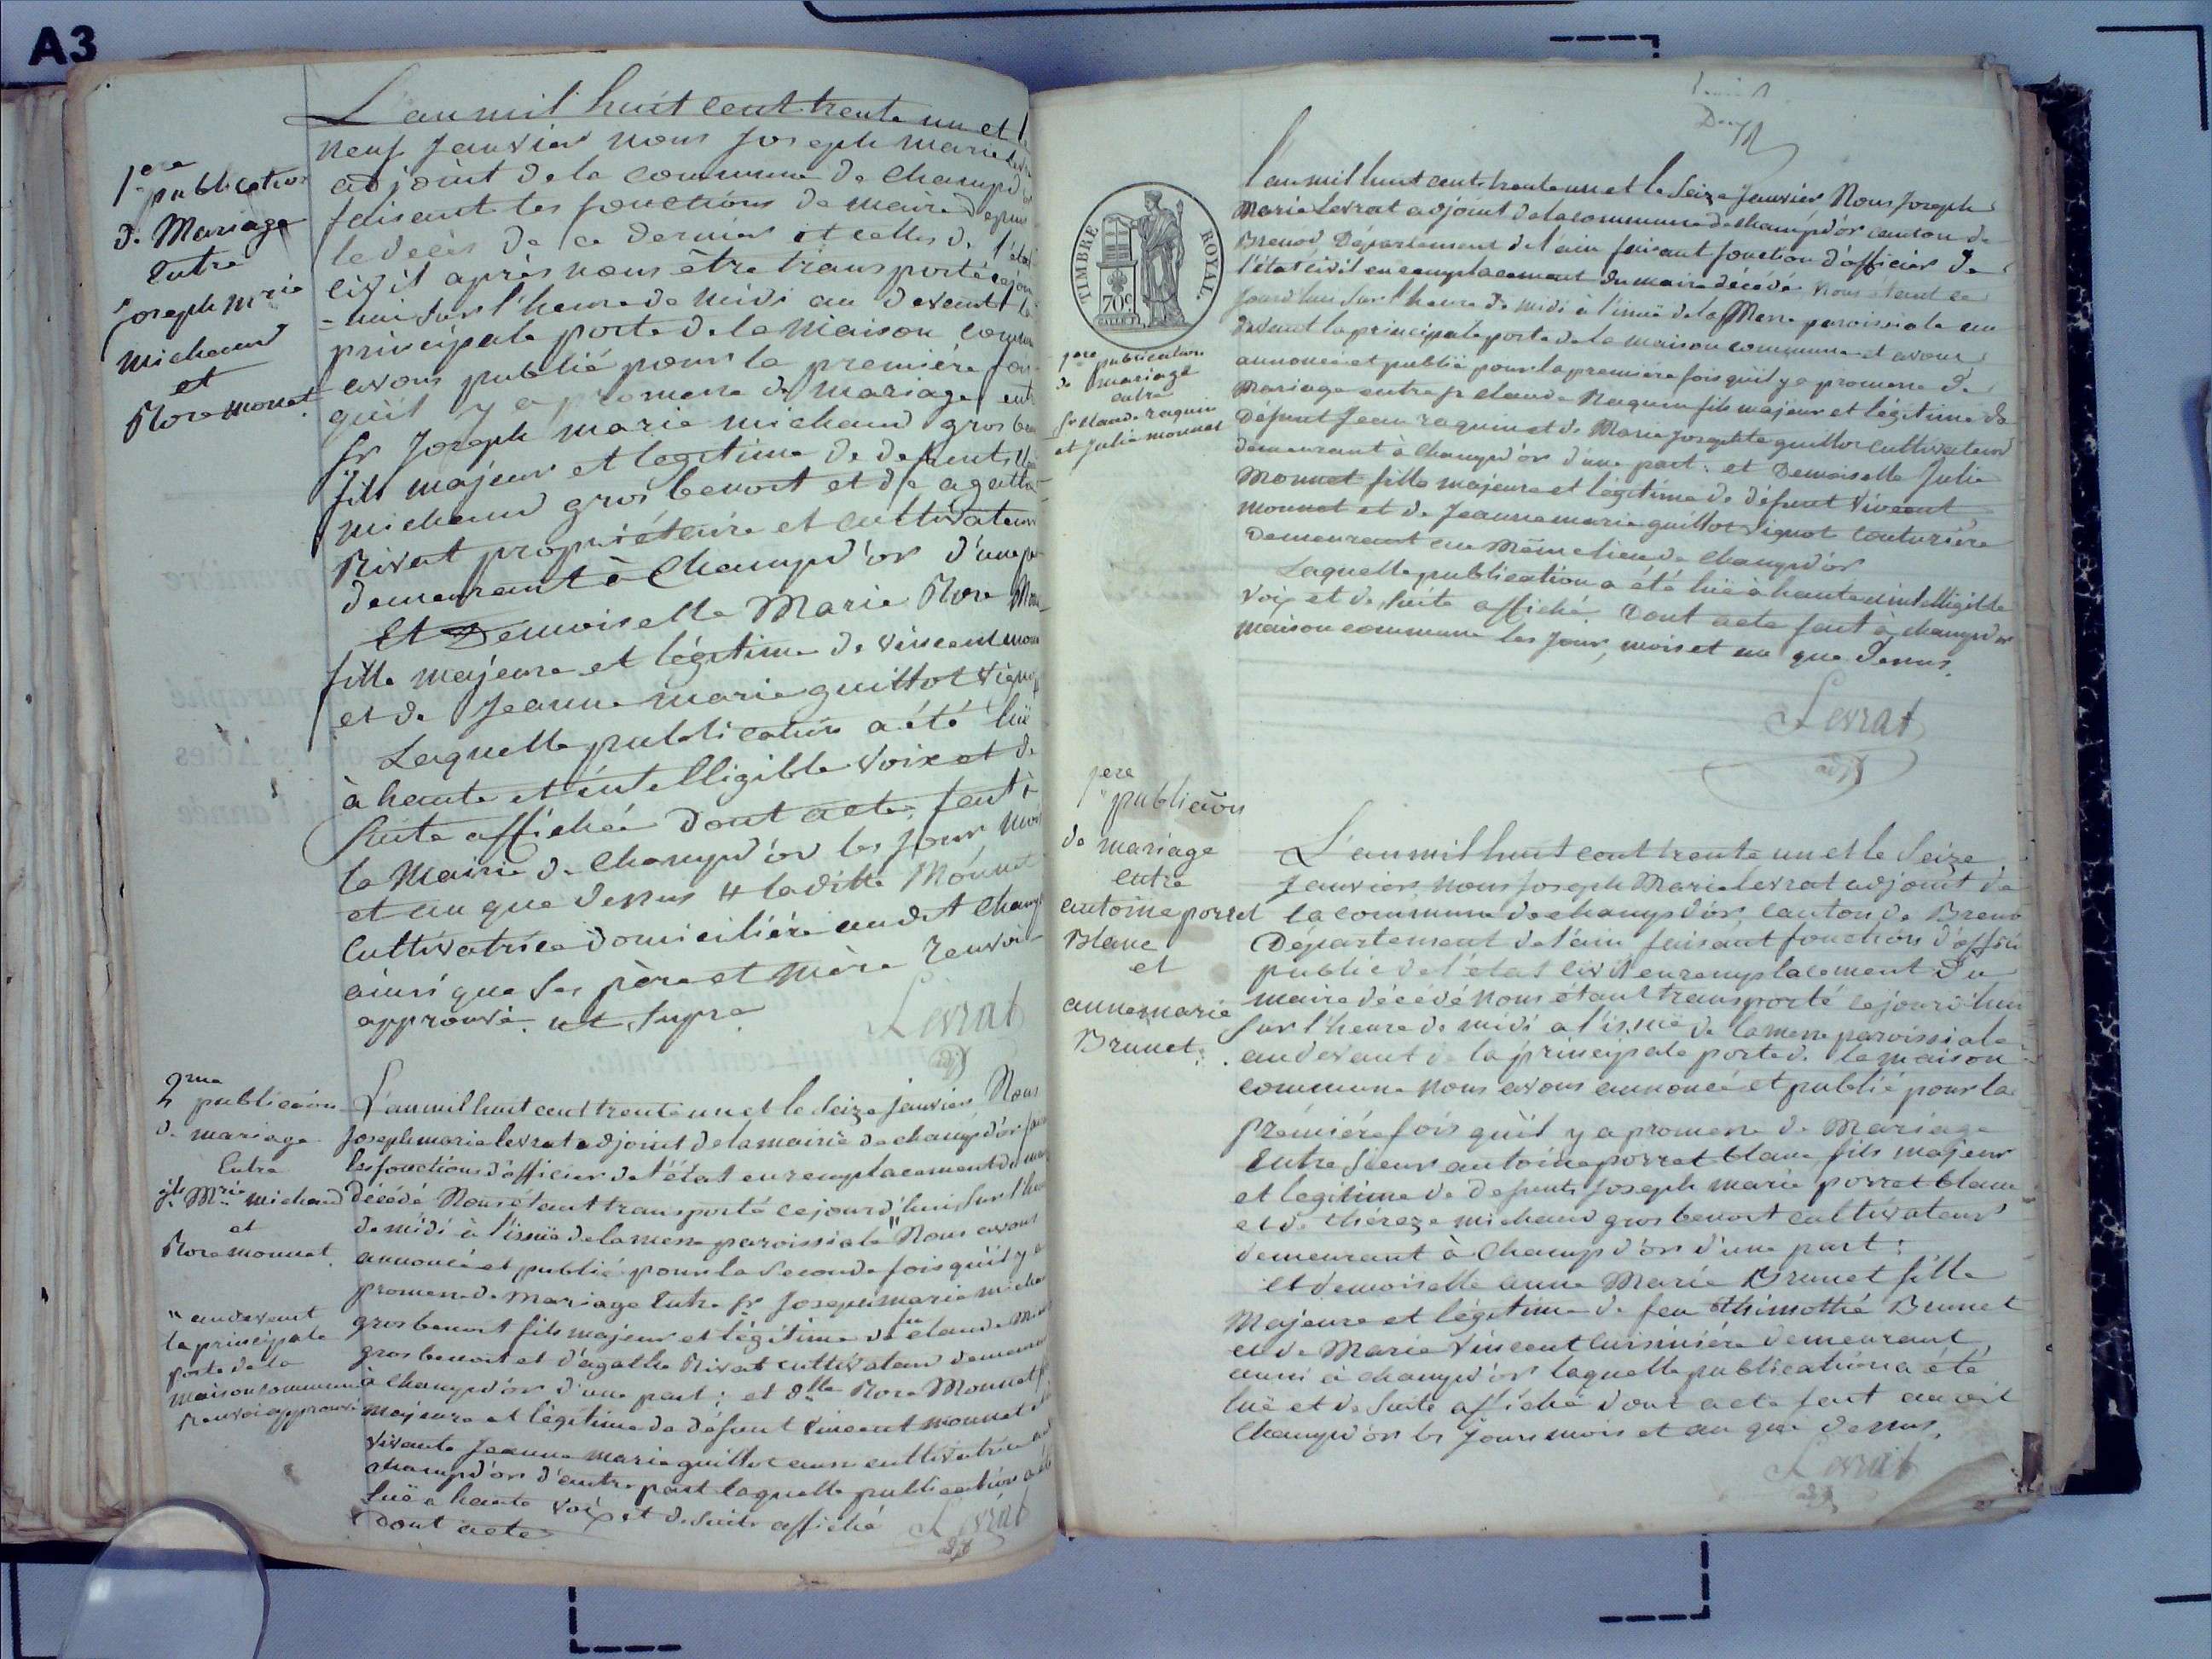 A3
1ere publication
de Mariage
Entre
Joseph Mrie
michaud
et
Rose monnet.
L'an mil huit cent trente un et le
neuf Janvier nous Joseph marie
adjoint de la commune de champd'or
faisant les fonctions de maire depuis
le décès de ce dernier et celles de l'état
civil après nous être transporté cejour
=hui sur l'heure de midi au devant la
principale porte de la maison commune
avons publié pour la première fois
qu'il y a promesse de mariage entre
Sr Joseph marie michaud gros benoit
fils majeur et légitime de defunts
michaud gros benoit et de agathe
Rivat propriétaire et cultivateur
demeurant à Champd'or d'une part
Et Demoiselle Marie Rose
fille majeure et légitime de vincent monnet
et de Jeanne marie guillot vignot
Laquelle publication a été lüe
à haute et intelligible voix et de
suite affichée dont acte, fait à
la Mairie de Champd'or les jour mois
et an que dessus # ladite Monnet
cultivatrice domiciliée audit champd'or
ainsi que ses père et mère renvoi
approuvé. ut supra.
Levrat
adjt
2me publicaon
de mariage
Entre
jh Mrie michaud
et
Rose monnet.
" au devant
la principale
porte de la
maison commune
Renvoi approuvé
L'an mil huit cent trente un et le seize janvier Nous
Joseph marie levrat adjoint de la mairie de champd'or
les fonctions d'officier de l'état en remplacement du maire
décédé Nous étant transporté cejourd'hui sur l'heure
de midi à l'issüe de la messe paroissiale " Nous avons
annoncé et publié pour la seconde fois qu'il y a
promesse de mariage Entre Sr Joseph marie michaud
gros benoit fils majeur et légitime de fu claude
gros benoit et d'agathe Rivat cultivateur demeurant
à champd'or d'une part; et dlle Rose Monnet
majeure et légitime de défunt vincent monnet
vivante Jeanne marie guillot cultivatrice
champd'or d'autre part laquelle publication a été
lüe a haute voix et de suite affiché
dont acte
Levrat
adjt
TIMBRE ROYAL.
70c.
1ere publication
de mariage
entre
Sr claude raquin
et Julie monnet
l'an mil huit cent trente un et le seize Janvier Nous Joseph
Marie Levrat adjoint de la commune de champd'or canton de
Brenod, Département de l'ain faisant fonction d'officier de
l'état civil en remplacement du maire décédé Nous étant ce
jourd'hui sur l'heure de midi à l'issuë de la Messe paroissiale au
devant la principale porte de la maison commune et avons
annoncé et publié pour la premiere fois qu'il y a promesse de
Mariage entre Sr claude Raquin fils majeur et légitime de
Défunt Jean raquin et de Marie Josephte guillot cultivateur
demeurant à Champd'or d'une part; et Demoiselle Julie
Monnet fille majeure et légitime de défunt Vincent
monnet et de Jeanne marie guillot vignot couturière
demeurant au Même lieu de champd'or
Laquelle publication a été lüe à haute et intelligible
voix et de suite affiché. Dont acte fait à champd'or
maison commune les jour, mois et an que dessus.
Levrat
adjt
1ere
publicaon
de mariage
Entre
antoine porret
Blanc
et
anne marie
Brunet.
L'an mil huit cent trente un et le seize
Janvier nous Joseph Marie levrat adjoint de
la commune de champd'or, canton de Breno
Département de l'ain faisant fonction d'offici
public de l'état civil en remplacement du
maire décédé Nous étant transporté cejourd'hui
sur l'heure de midi a l'issuë de la messe paroissiale
au devant de la principale porte de la maison
commune Nous avons annoncé et publié pour la
première fois qu'il y a promesse de Mariage
Entre Sieur antoine porret blanc fils majeur
et légitime de défunts Joseph marie porret blanc
et de thérèze michaud gros benoit cultivateur
demeurant à Champd'or d'une part;
et demoiselle anne Marie Brunet fille
Majeure et légitime de feu thimothé Brunet
et de Marie Vincent cuisinière demeurant
aussi à champd'or laquelle publication a été
lüe et de suite affiché dont acte fait audit
Champd'or les jours mois et an que dessus.
Levrat
adjt